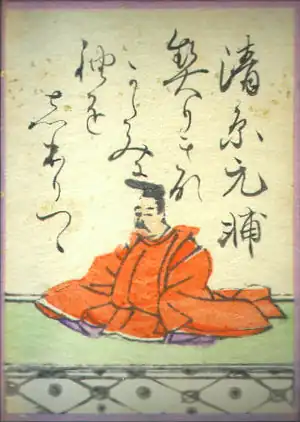 清原元輔
契りきな
かたみに
袖を
しぼりつゝ